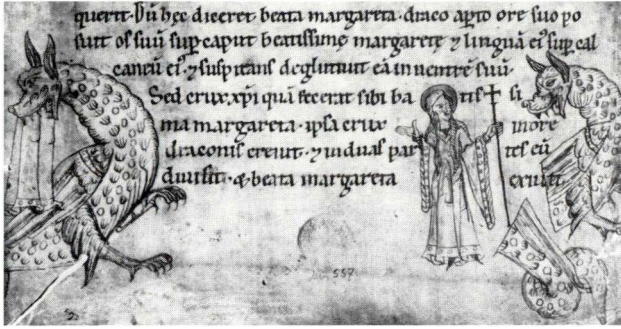 querit. Dū hęc diceret beata margareta. draco apto ore suo po
suit os suū sup caput beatissimę margaretę ⁊ linguā ei᷒ sup cal
caneū ei᷒. ⁊ suspitans deglutiuit eā in uentrē suū.
Sed crux xp̄i quā fecerat sibi ba tis si
ma margareta. ipsa crux in ore
draconis creuit. ⁊ in duas par tes eū
diuisit. & beata margareta exiuit
557